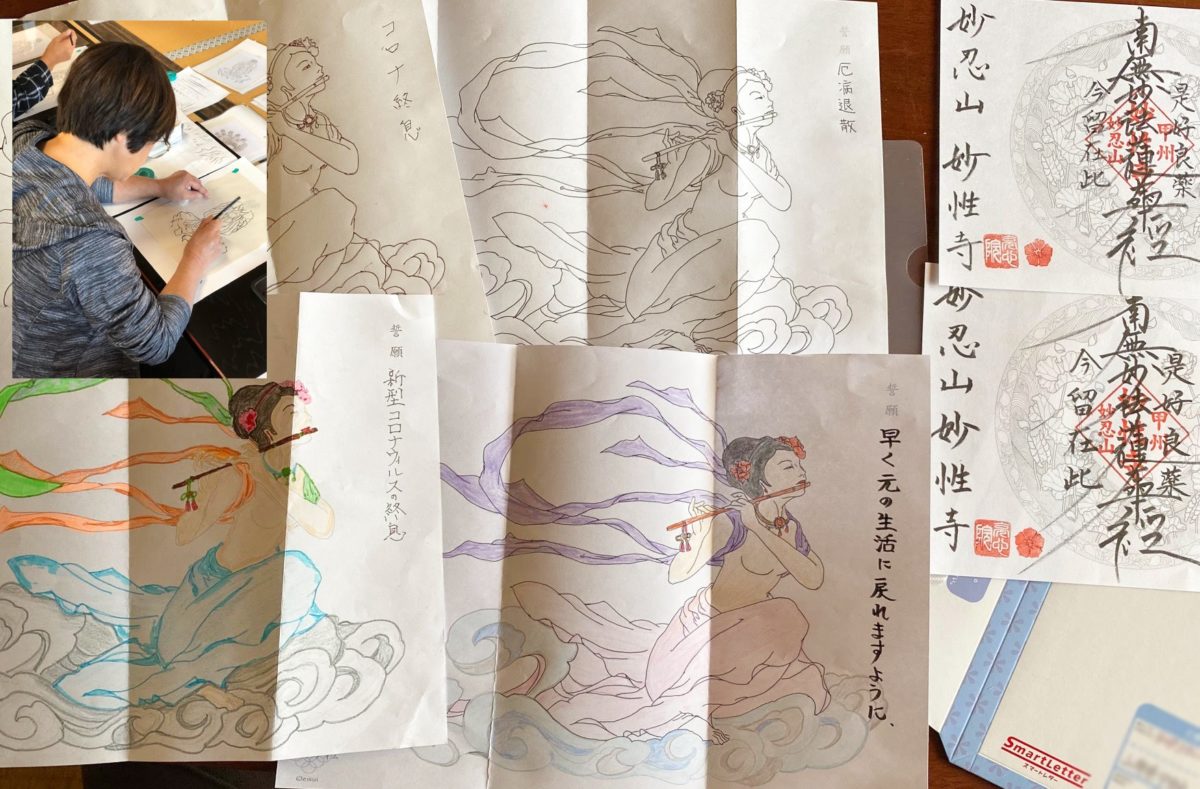 コロナ終息
誓願 厄病退散
誓願 新型コロナウィルスの終息
誓願 早く元の生活に戻れますように、
©eisui
是好良薬
南無妙法蓮華経
今留在此
甲州
妙忍山
妙忍山 妙性寺
是好良薬
南無妙法蓮華経
今留在此
甲州
妙忍山
妙忍山 妙性寺
SmartLetter
スマートレター